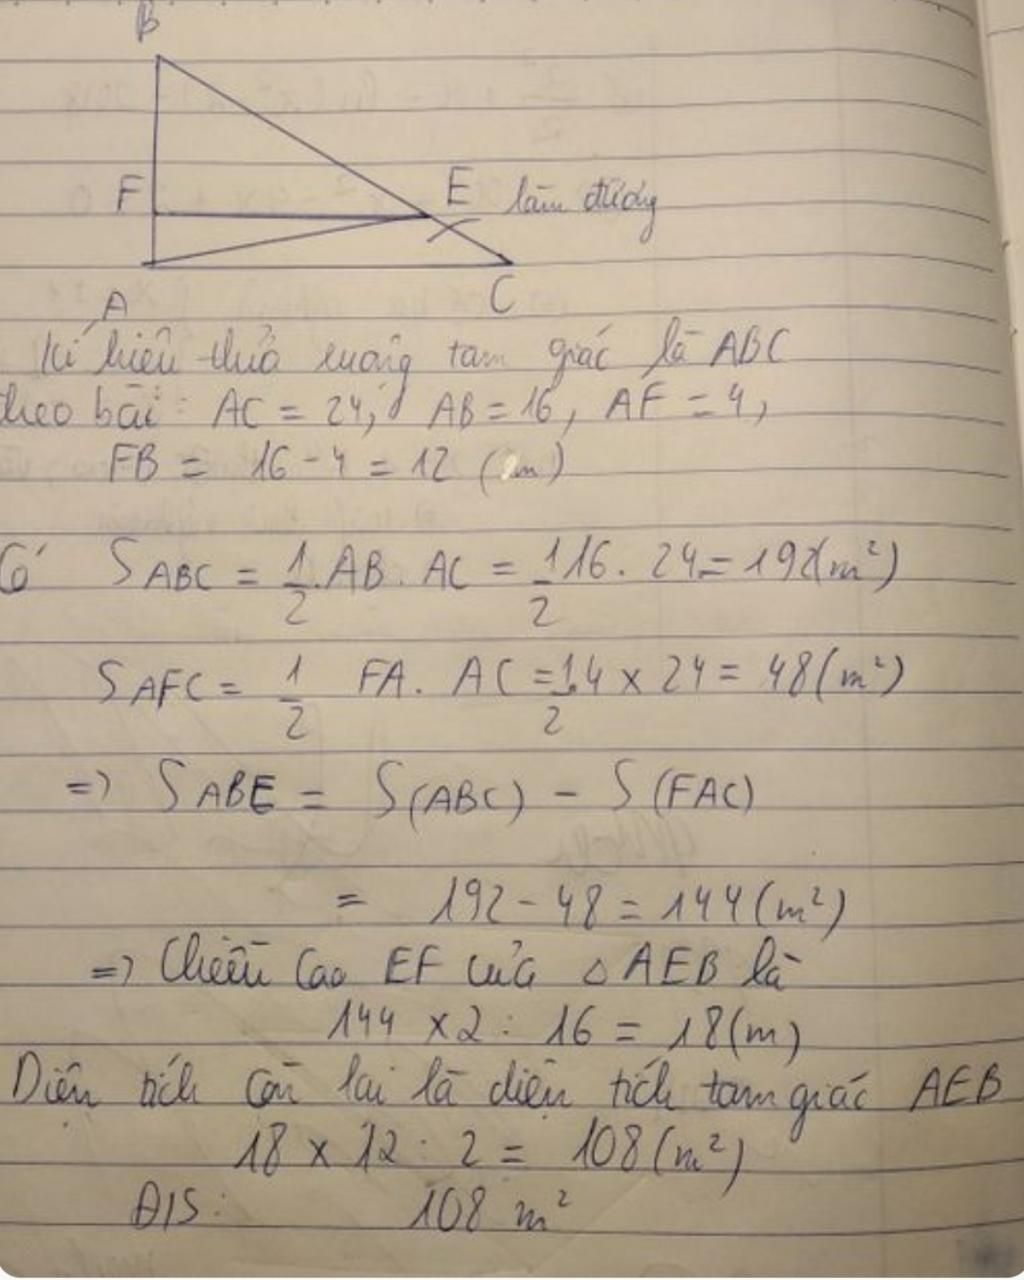 B
F
E làm đường
A
C
Kí hiệu thửa ruộng tam giác là ABC
theo bài: AC = 24, AB = 16, AF = 4,
FB = 16 - 4 = 12 (m)
Có S ABC = 1/2 . AB . AC = 1/2 16 . 24 = 192 (m²)
S AFC = 1/2 FA . AC = 1/2 . 4 x 24 = 48 (m²)
=> S ABE = S(ABC) - S(FAC)
= 192 - 48 = 144 (m²)
=> Chiều cao EF của △ AEB là
144 x 2 : 16 = 18 (m)
Diện tích còn lại là diện tích tam giác AEB
18 x 12 : 2 = 108 (m²)
Đ/S: 108 m²